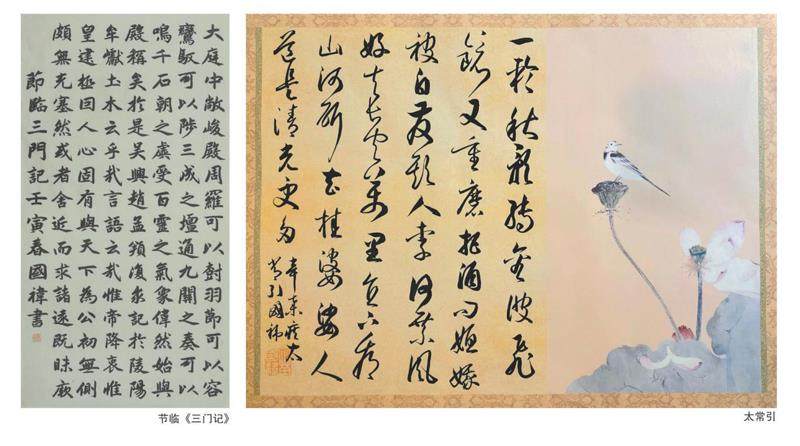 大庭中敞峻殿周羅可以對羽節可以容
鸞馭可以陟三成之壇通九關之奏可以
鳴千石朝之虡受百靈之氣象偉然始與
殿稱矣於是吳興趙孟頫復求記於陵陽
牟巘土木云乎哉言語云哉惟帝降衷惟
皇建極因人心固有與天下為公初無側
頗無充塞然或者舍近而求諸遠既昧厥
節臨三門記壬寅春國禕書
节临《三门记》
一輪秋影轉金波飛
鏡又重磨把酒問姮娥
被白髮欺人奈何乘風
好去長空萬里直下看
山河斫去桂婆娑人
道是清光更多
辛棄疾太
常引國禕
太常引